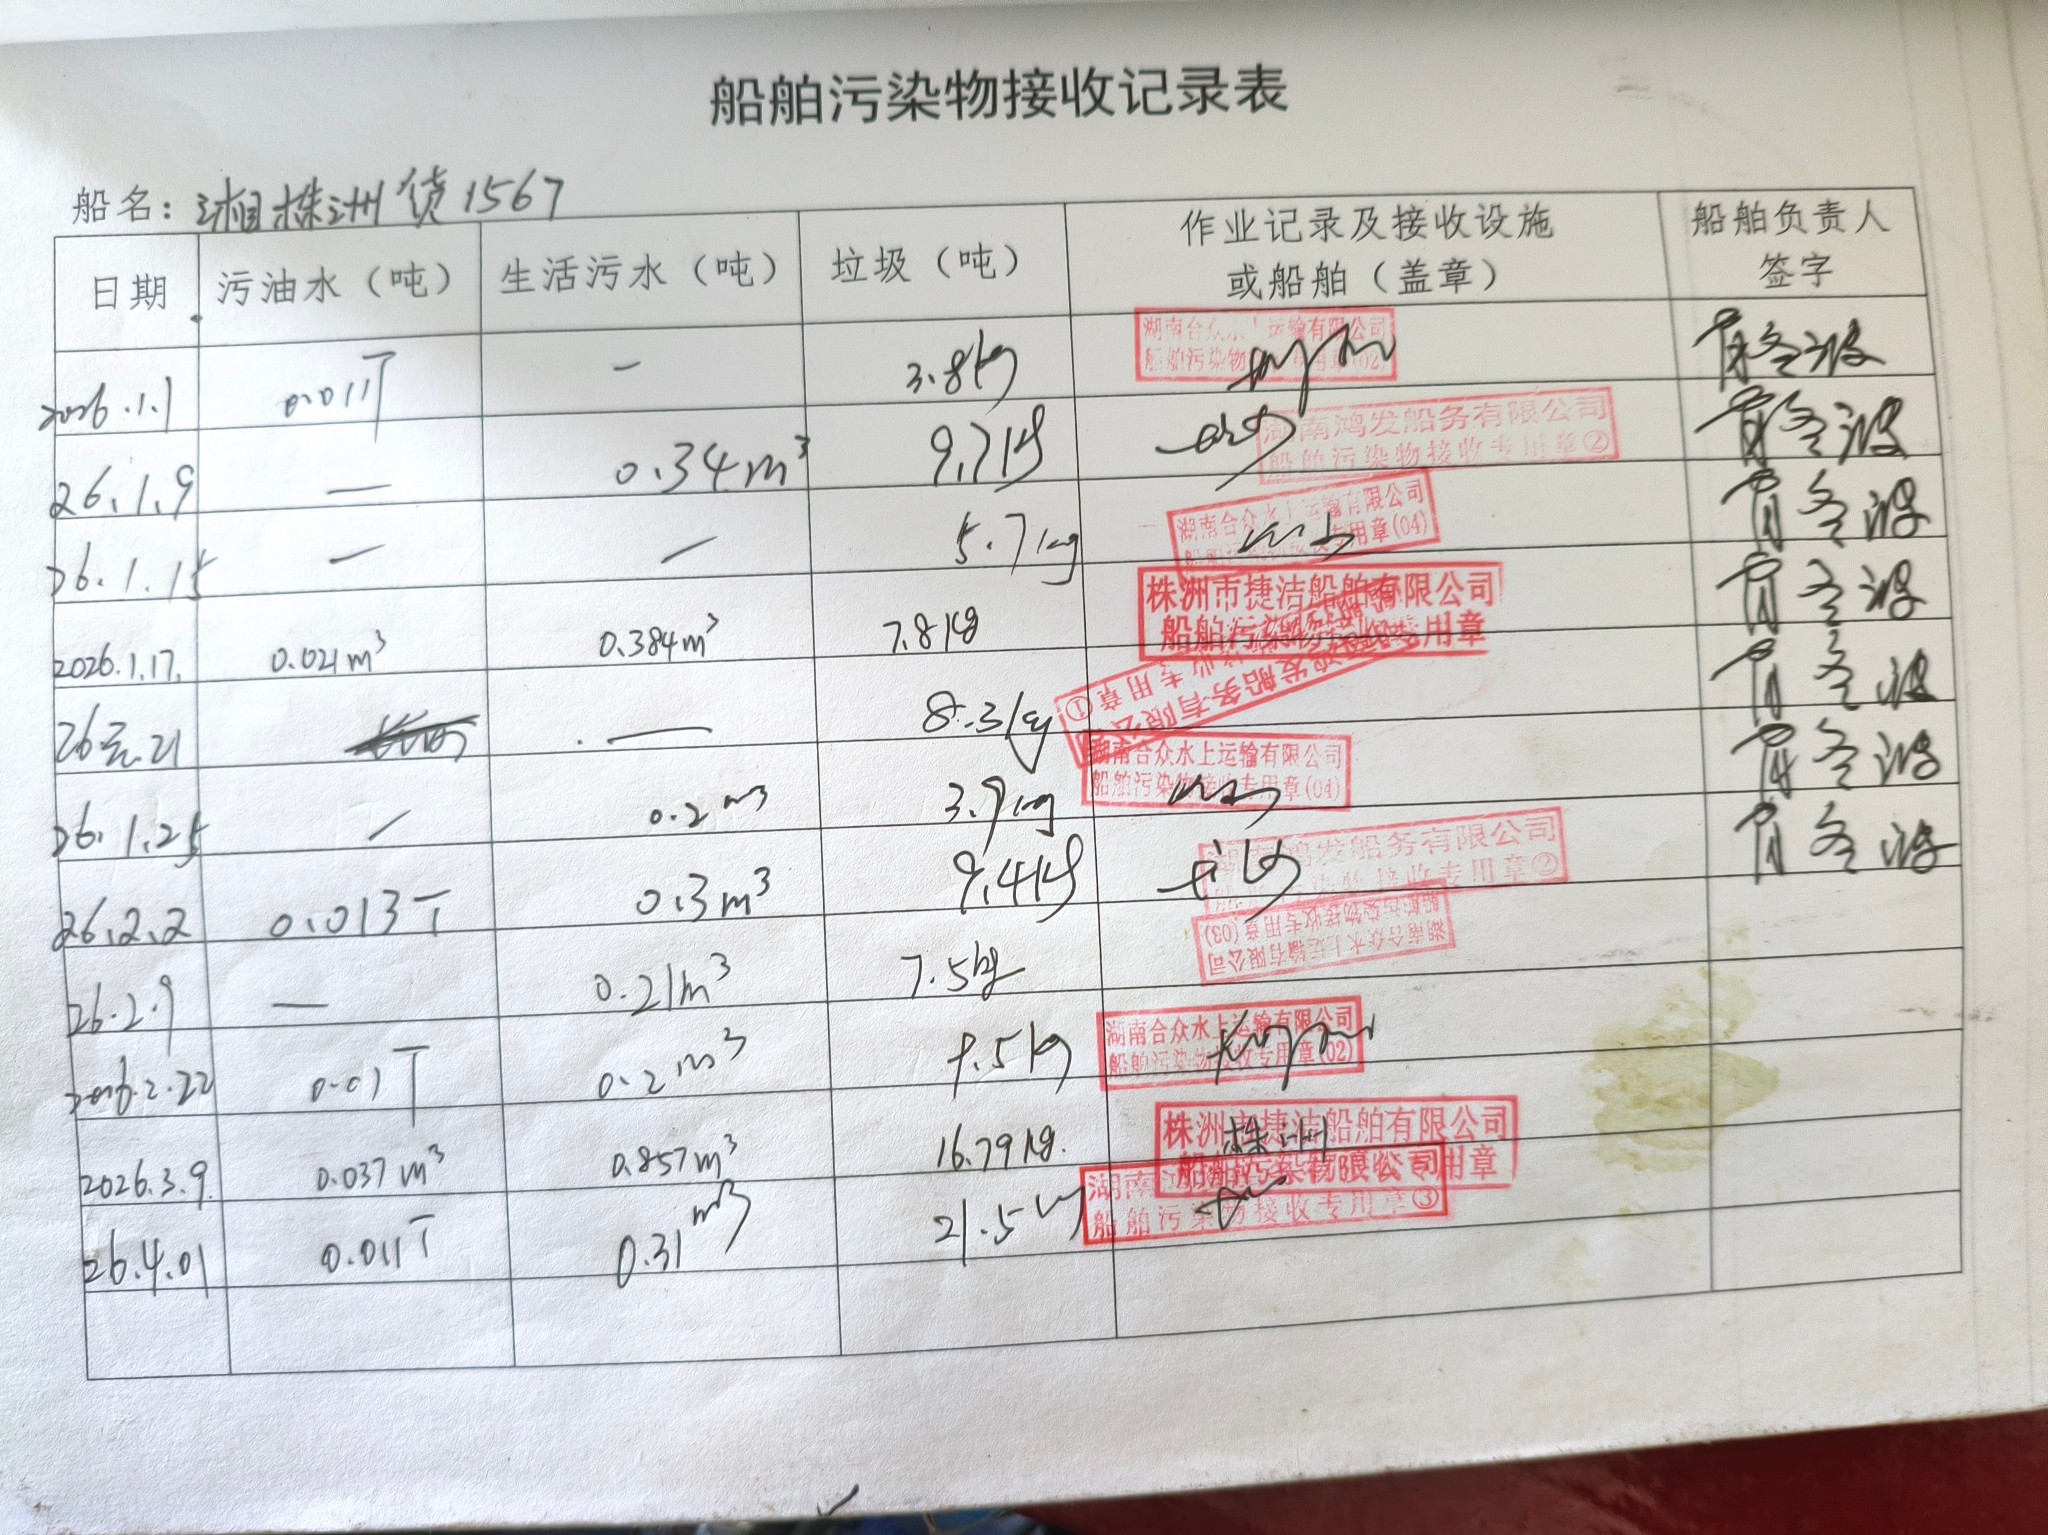 船舶污染物接收记录表
船名：湘株洲货1567
日期 污油水（吨） 生活污水（吨） 垃圾（吨） 作业记录及接收设施或船舶（盖章） 船舶负责人签字
2026.1.1 0.011T — 3.8kg 湖南合众水上运输有限公司
船舶污染物接收专用章(02)
26.1.9 — 0.34m³ 9.7kg 湖南鸿发船务有限公司
船舶污染物接收专用章②
26.1.15 — — 5.7kg 湖南合众水上运输有限公司
专用章(04)
2026.1.17. 0.021m³ 0.384m³ 7.8kg 株洲市捷洁船舶有限公司
船舶污染物接收专用章
26.元.21 — 8.3kg 鸿发船务有限公
专用章①
26.1.25 — 0.2m³ 3.9kg 湖南合众水上运输有限公司
船舶污染物接收专用章(04)
26.2.2 0.013T 0.3m³ 9.4kg 湖南鸿发船务有限公司
专用章②
26.2.9 — 0.21m³ 7.5kg 湖南合众水上运输有限公司
船舶污染物接收专用章(03)
2026.2.22 0.01T 0.2m³ 9.5kg 湖南合众水上运输有限公司
船舶污染物接收专用章(02)
2026.3.9. 0.037m³ 0.857m³ 16.79kg. 株洲市捷洁船舶有限公司
株洲
26.4.01 0.011T 0.31m³ 21.5 湖南 有限公司
船舶污染物接收专用章③